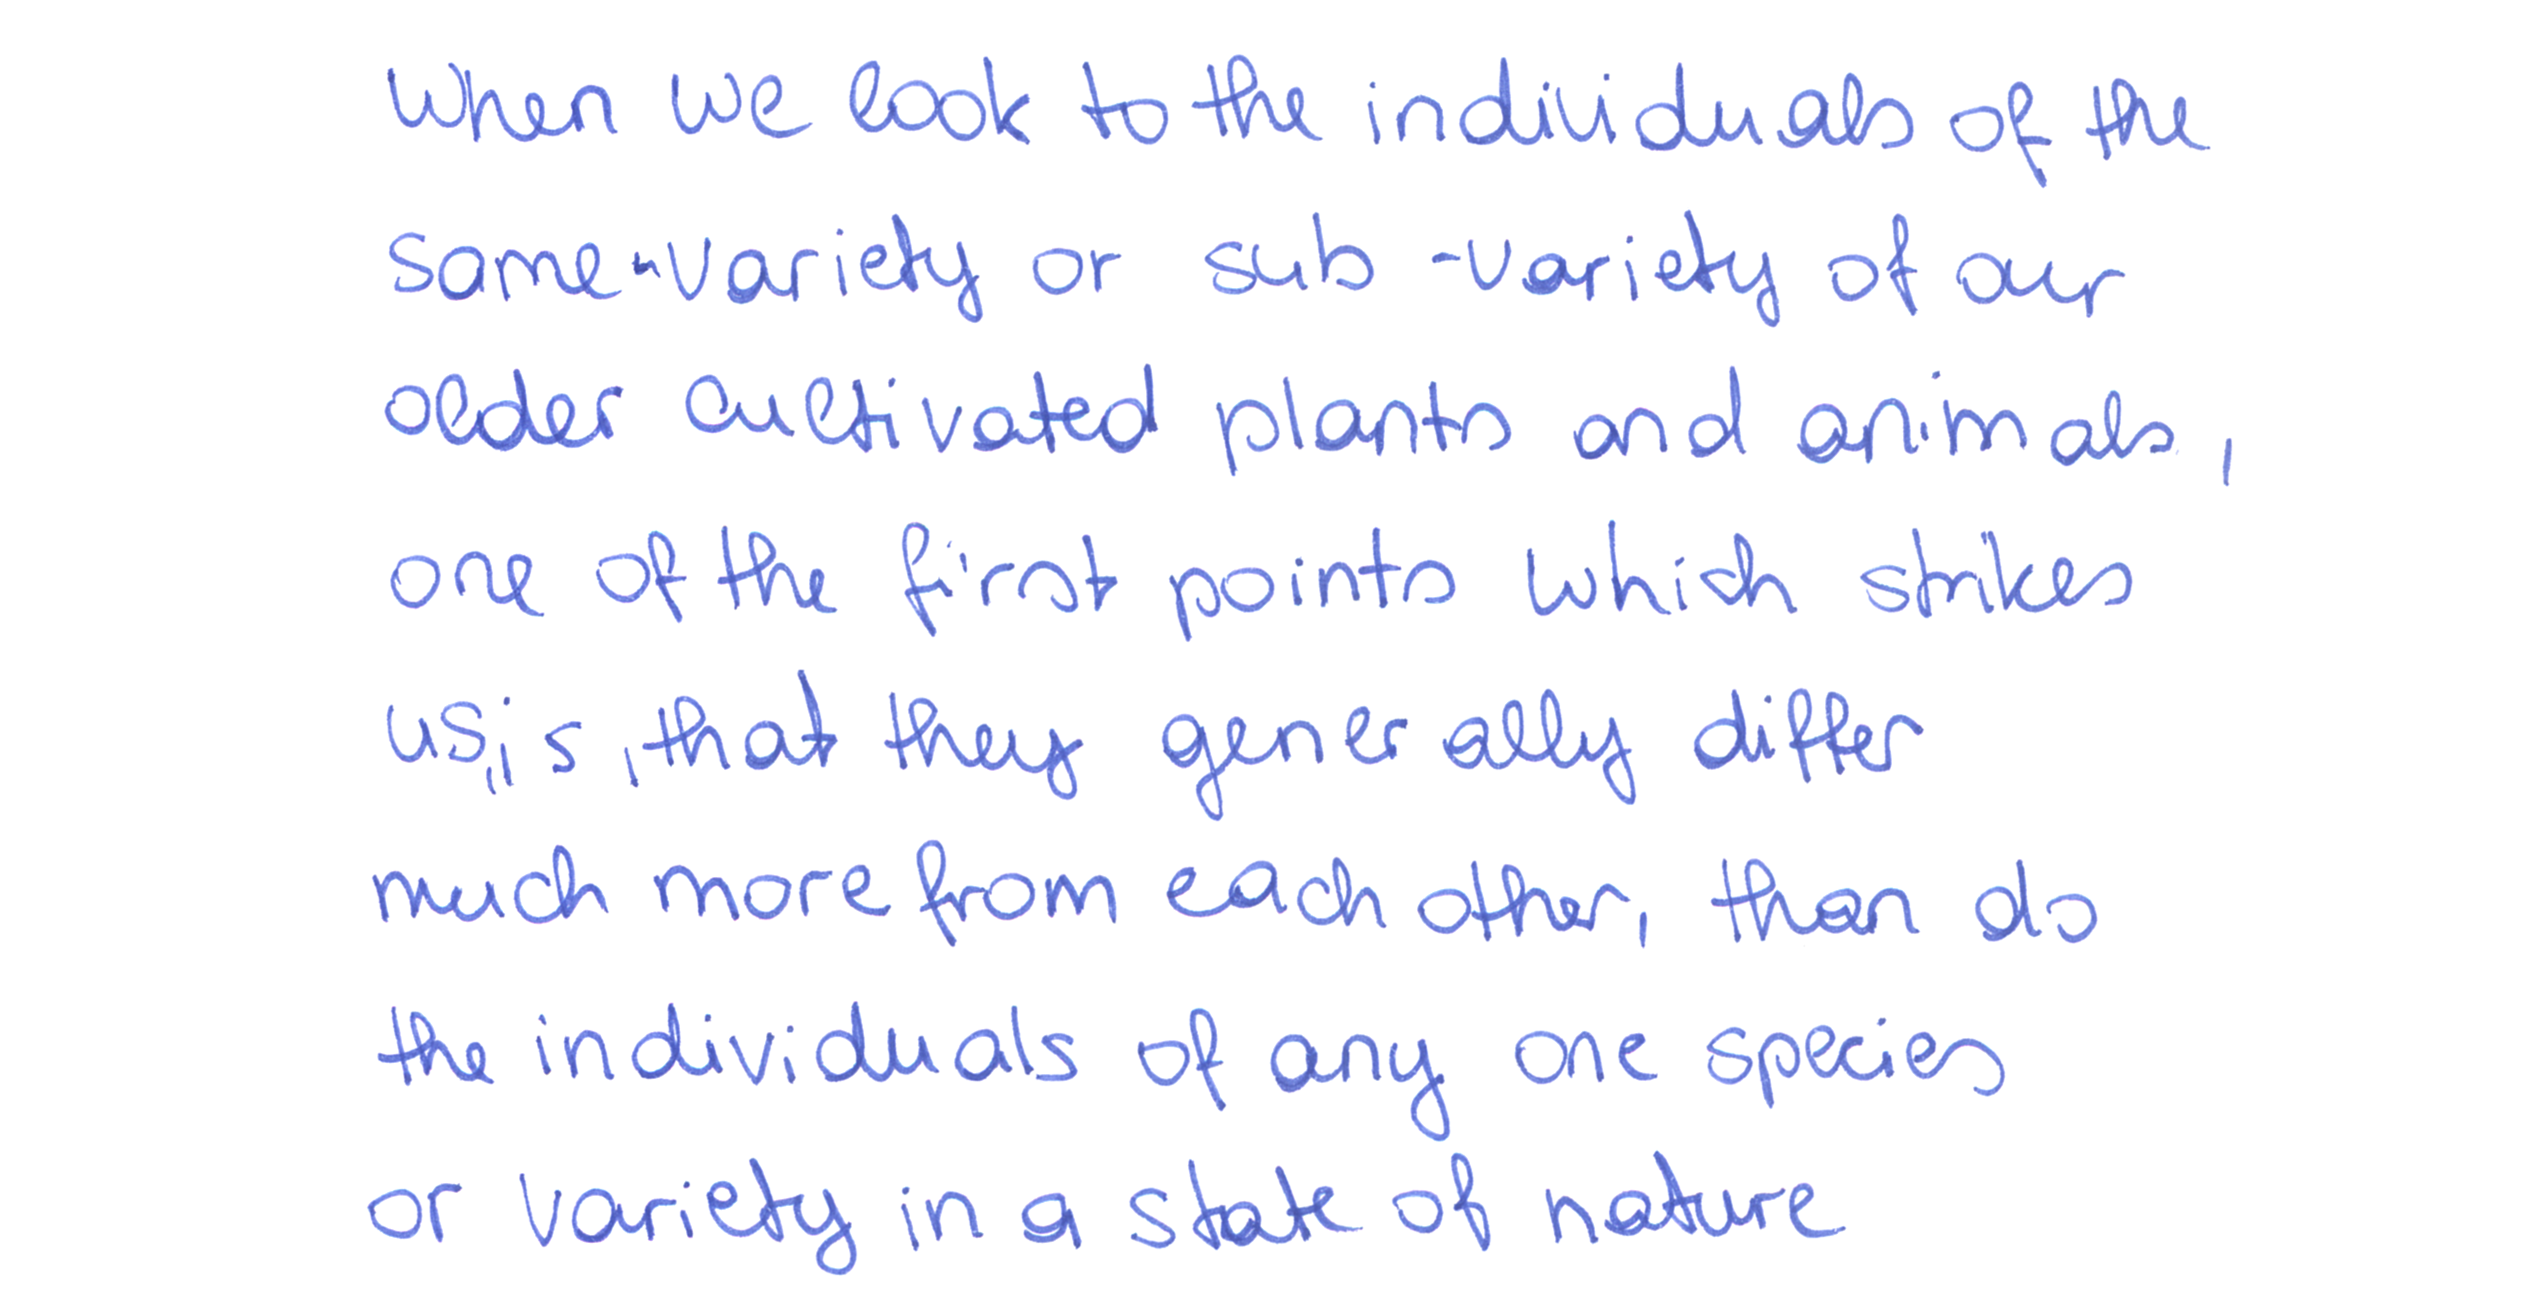 When we look to the individuals of the
same-variety or sub-variety of our
older cultivated plants and animals,
one of the first points which strikes
us, is, that they generally differ
much more from each other, than do
the individuals of any one species
or variety in a state of nature